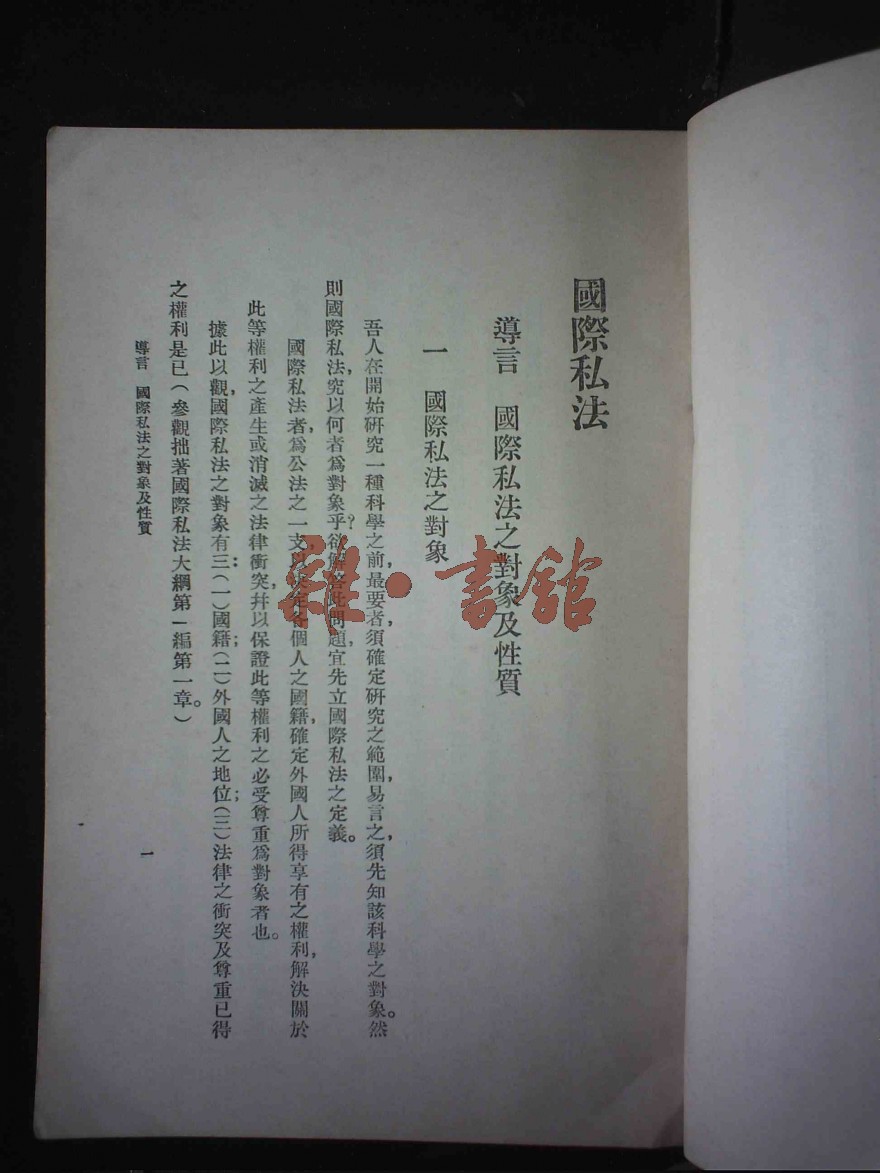 國際私法
導言　國際私法之對象及性質
一　國際私法之對象
吾人在開始研究一種科學之前，最要者，須確定研究之範圍，易言之，須先知該科學之對象。然
則國際私法，究以何者爲對象乎？欲解答此問題，宜先立國際私法之定義。
國際私法者，爲公法之一支，以決定各個人之國籍，確定外國人所得享有之權利，解決關於
此等權利之產生或消滅之法律衝突，幷以保證此等權利之必受尊重爲對象者也。
據此以觀，國際私法之對象有三：（一）國籍；（二）外國人之地位；（三）法律之衝突及尊重已得
之權利是已（參觀拙著國際私法大綱第一編第一章。）
導言　國際私法之對象及性質
一
雜·書館